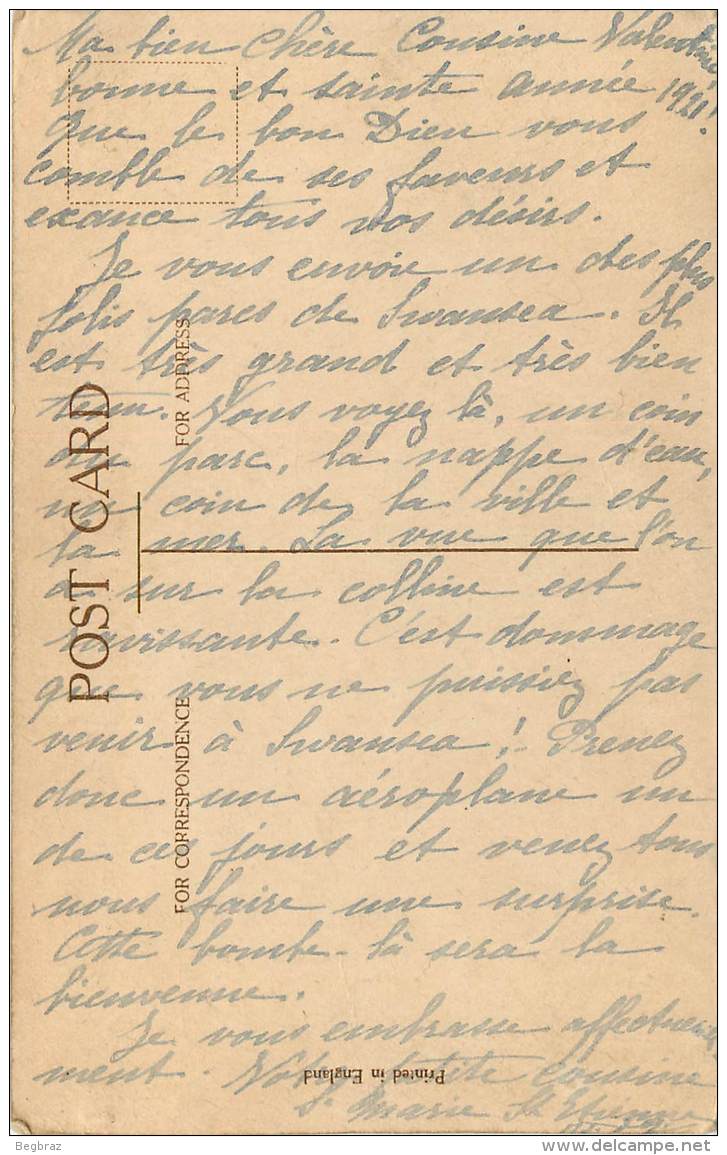 Ma bien chère Cousine Valentine
bonne et sainte année 1921!
Que le bon Dieu vous
comble de ses faveurs et
exauce tous vos désirs.
Je vous envoie un des plus
jolis parcs de Swansea. Il
est très grand et très bien
tenu. Vous voyez là, un coin
du parc, la nappe d'eau,
un coin de la ville et
la mer. La vue que l'on
a sur la colline est
ravissante. C'est dommage
que vous ne puissiez pas
venir à Swansea! Prenez
donc un aéroplane un
de ces jours et venez tous
nous faire une surprise.
Cette bombe-là sera la
bienvenue.
Je vous embrasse affectueuse-
ment. Votre petite cousine
Sr Marie St Etienne
POST CARD
FOR ADDRESS
FOR CORRESPONDENCE
Printed in England
Begbraz
www.delcampe.net